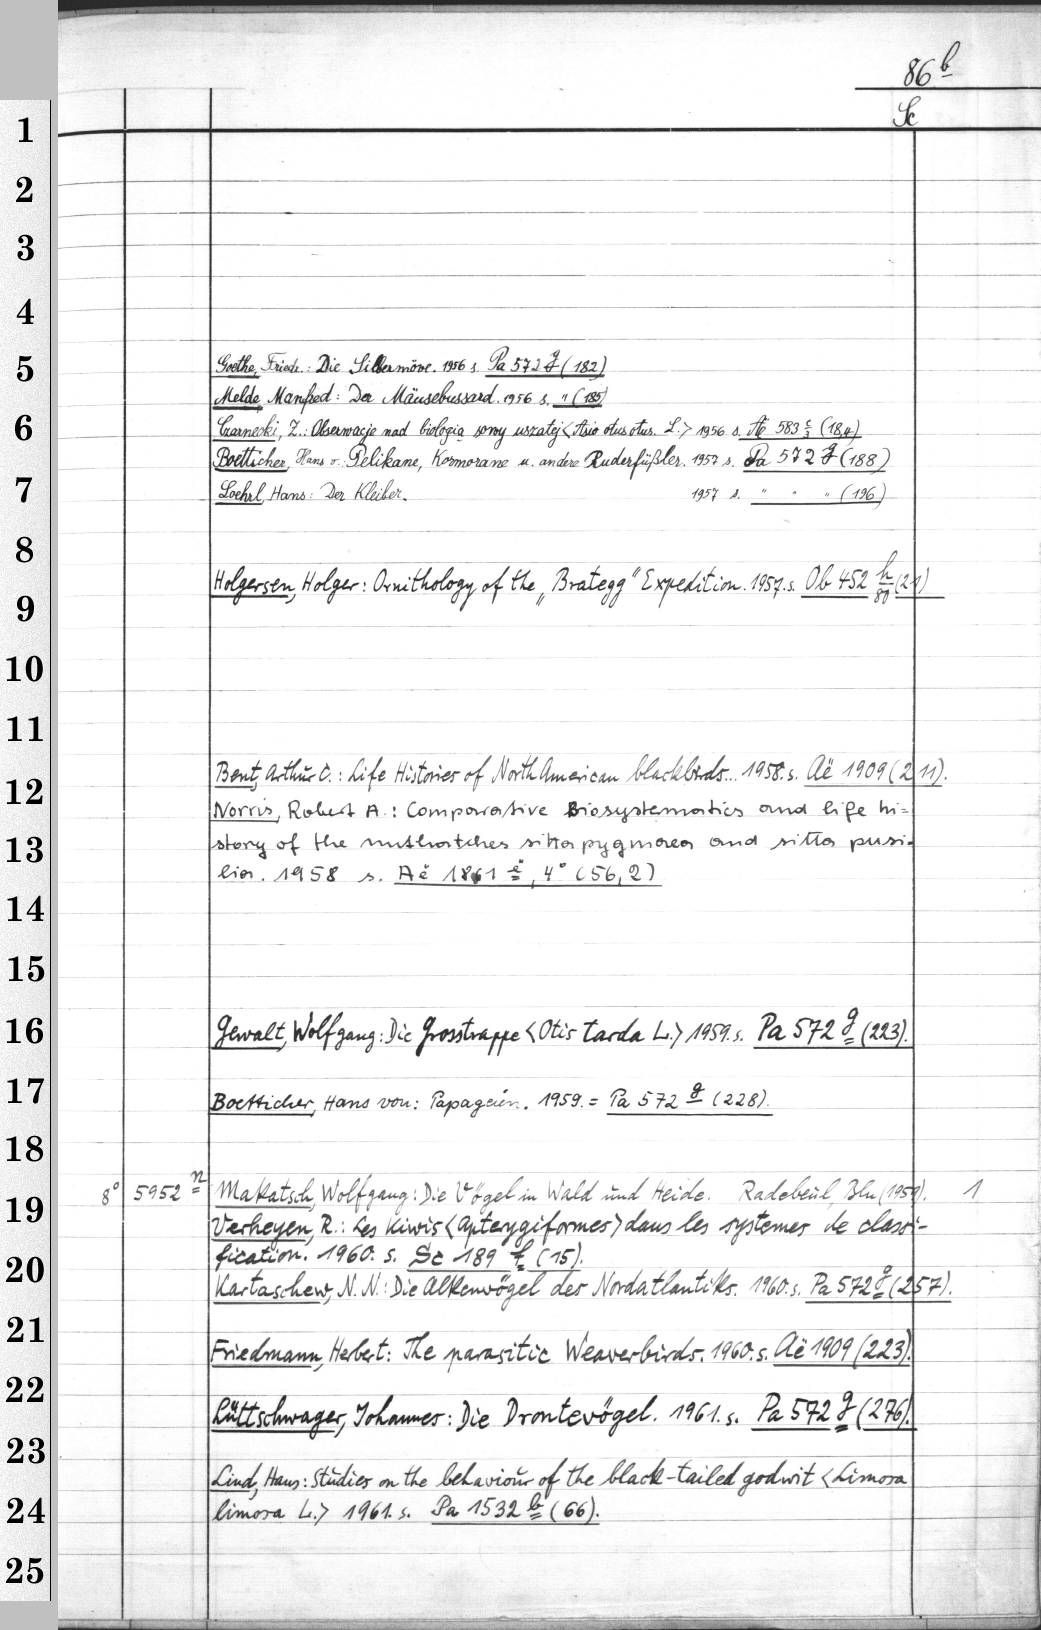 86 b
Sc
1
2
3
4
5
Goethe, Friedr.: Die Silbermöve. 1956 s. Pa 572 g (182)
Melde, Manfred: Der Mäusebussard. 1956 s. " (185)
6
Czarnecki, Z.: Obserwacje nad biologią sowy uszatej <Asio otus otus. L.> 1956 s. 583 (184)
Boetticher, Hans v. Pelikane, Kormorane u. andere Ruderfüßler. 1957 s. Pa 572 g (188)
7
Loehrl, Hans: Der Kleiber. 1957 s. " " " (196)
8
Holgersen, Holger: Ornithology of the „Brategg" Expedition. 1957. s. Ob 452 h/80 (21)
9
10
11
Bent, Arthur C.: Life Histories of North American blackbirds... 1958. s. Aë 1909 (211).
12
Norris, Robert A.: Comparative Biosystematics and life hi=
13
story of the nuthatches sitta pygmaea and sitta pusi-
lia. 1958 s. Aë 1861 e, 4° (56,2)
14
15
16
Gewalt, Wolfgang: Die Grosstrappe <Otis tarda L.> 1959. s. Pa 572 g (223).
17
Boetticher, Hans von: Papageien. 1959. = Pa 572 g (228).
18
8° 5952 n Makatsch, Wolfgang: Die Vögel in Wald und Heide. Radebeul, Bln (1959). 1
19
Verheyen, R.: Les Kiwis <Apterygiformes> dans les systemes de classi-
fication. 1960. s. Sc 189 f (15).
20
Kartaschew, N. N.: Die Alkenvögel des Nordatlantiks. 1960. s. Pa 572 g (257).
21
Friedmann, Herbert: The parasitic Weaverbirds. 1960. s. Aë 1909 (223).
22
Lüttschwager, Johannes: Die Drontevögel. 1961. s. Pa 572 g (276).
23
Lind, Hans: Studies on the behaviour of the black-tailed godwit <Limosa
24
limosa L.> 1961. s. Pa 1532 b (66).
25